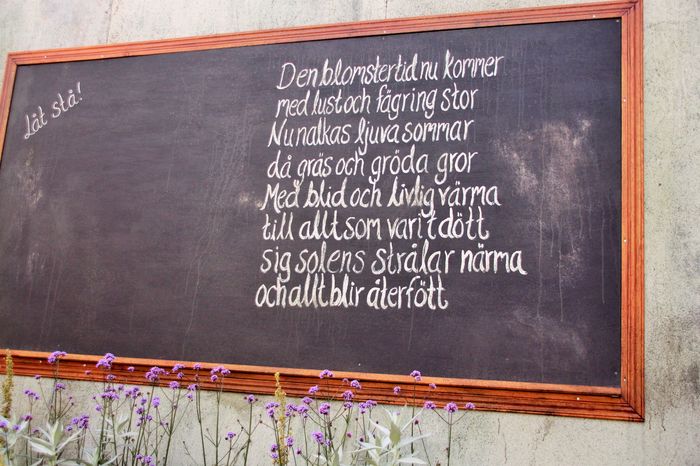 Låt stå!
Den blomstertid nu kommer
med lust och fägring stor
Nu nalkas ljuva sommar
då gräs och gröda gror
Med blid och livlig värma
till allt som varit dött
sig solens strålar närma
och allt blir återfött